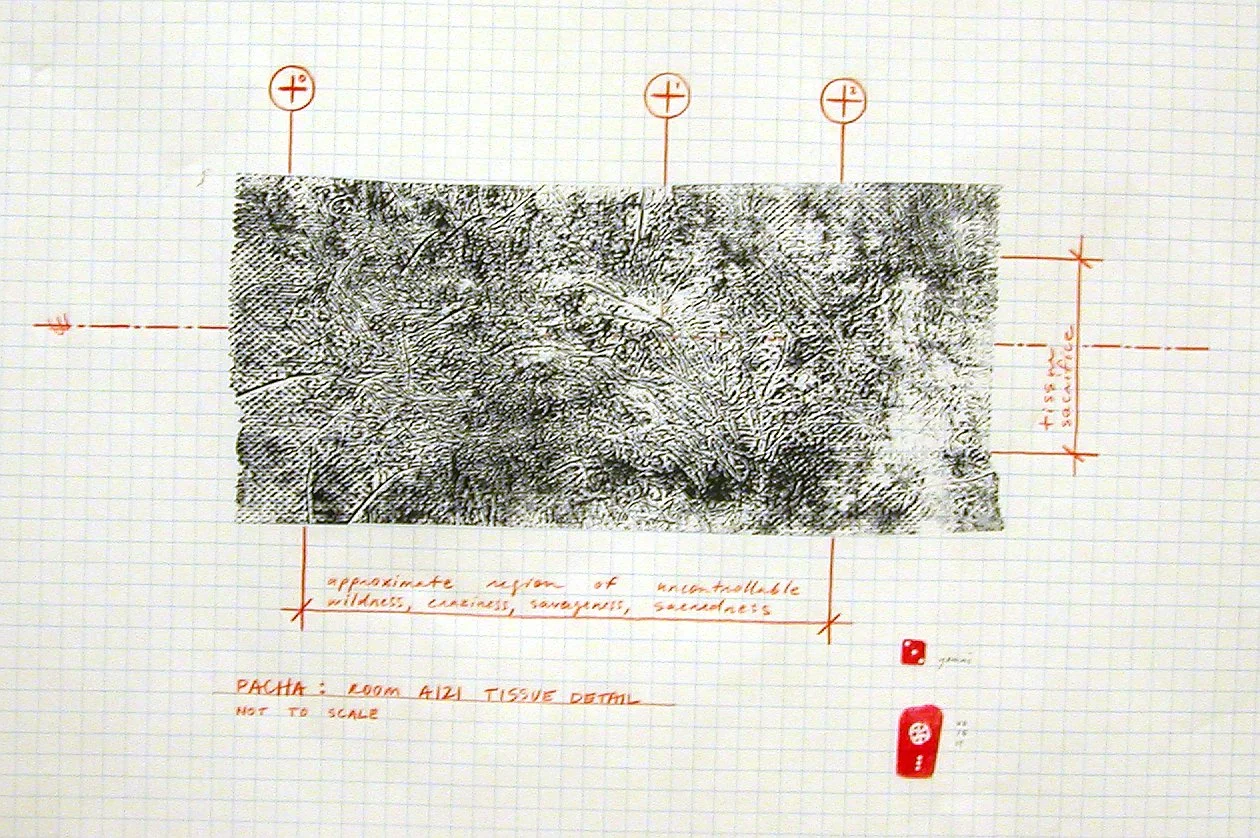 0
1
2
tissue
sacrifice
approximate region of uncontrollable
wildness, craziness, savageness, sacredness
PACHA: ROOM A121 TISSUE DETAIL
NOT TO SCALE